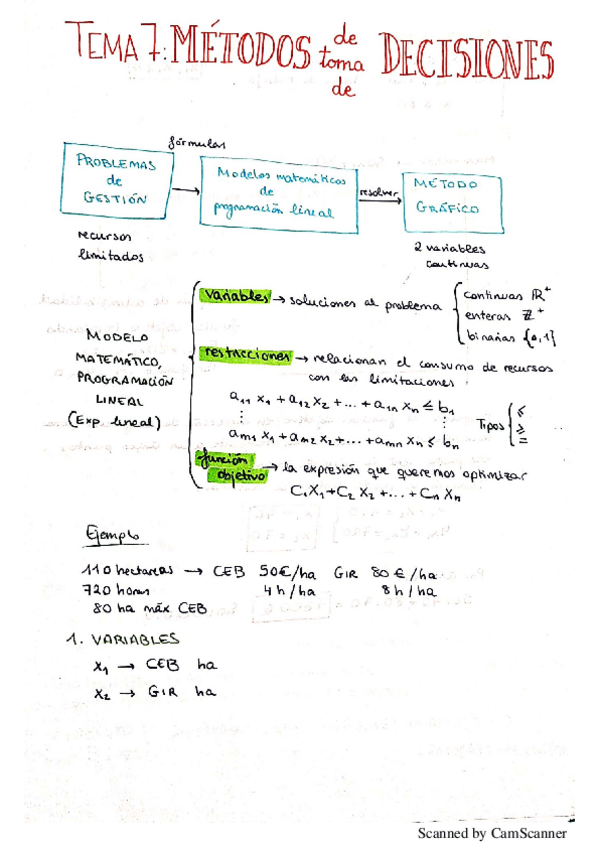 TEMA 7: MÉTODOS de toma de DECISIONES
fórmulas
PROBLEMAS de GESTIÓN → Modelos matemáticos de programación lineal → resolver MÉTODO GRÁFICO
recursos limitados
2 variables continuas
MODELO MATEMÁTICO, PROGRAMACIÓN LINEAL (Exp. lineal)
variables → soluciones al problema
continuas ℝ⁺
enteras ℤ⁺
binarias {0,1}
restricciones → relacionan el consumo de recursos
con las limitaciones
a₁₁ x₁ + a₁₂ x₂ + ... + a₁ₙ xₙ ≤ b₁
⋮ ⋮
aₘ₁ x₁ + aₘ₂ x₂ + ... + aₘₙ xₙ ≤ bₙ
Tipos { ≤ ≥ =
función objetivo → la expresión que queremos optimizar
C₁X₁ + C₂ X₂ + ... + Cₙ Xₙ
Ejemplo
110 hectareas → CEB 50€/ha GIR 80€/ha
720 horas 4h/ha 8h/ha
80 ha máx CEB
1. VARIABLES
x₁ → CEB ha
x₂ → GIR ha
Scanned by CamScanner